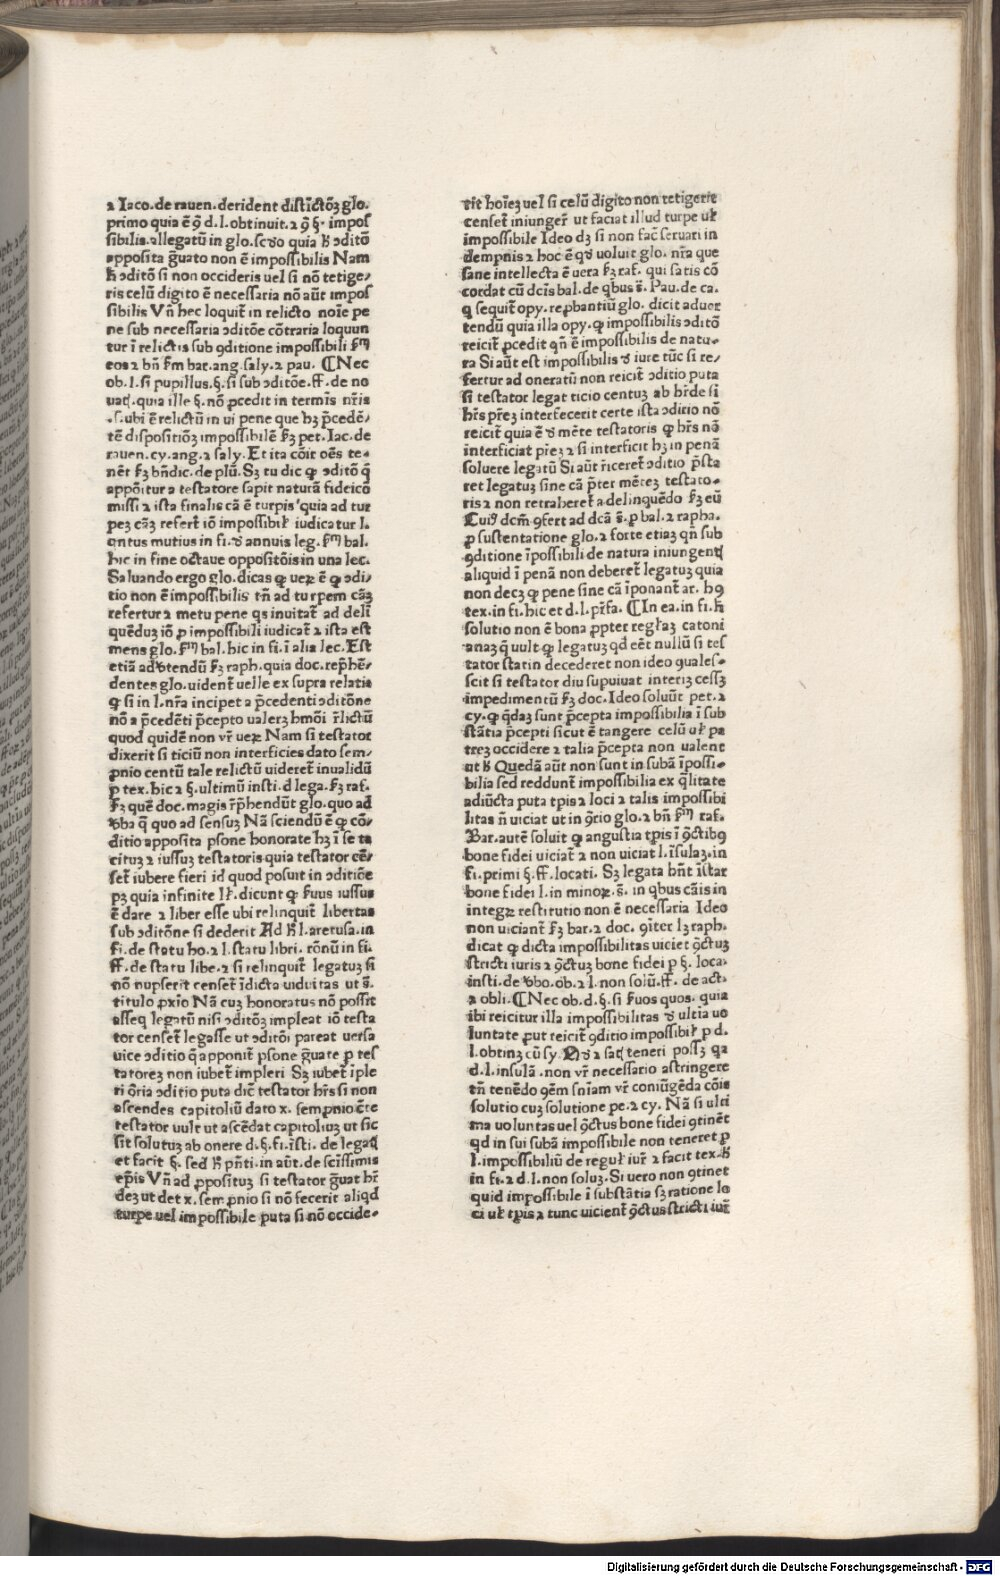 ⁊ Iaco.de rauen.derident distīctōꝫ glo.
primo quia ē ꝯ d.l.obtinuit.⁊ ꝯ̄ §.impos
sibilis.allegatū in glo.scđo quia h̄ ↄditō
apposita g̃uato non ē impossibilis Nam
h̄ ↄditō si non occideris uel si nō tetige⸗
ris celū digito ē necessaria nō aūt impos
sibilis Vñ hec loquit̄ in relicto noīe pe
ne sub necessaria ↄditōe cōtraria loquun
tur ī relictis sub ꝯditione impossibili ẜm
eos ⁊ bñ ẜm bar.ang.saly.⁊ pau. ¶Nec
ob.l.si pupillus.§.si sub ↄditōe.ff.de no
uat.quia ille §.nō ꝓcedit in termīs nr̄is
.s.ubi ē relictū in ui pene que hꝫ p̄cedē⸗
tē dispositiōꝫ impossibilē ẜꝫ pet.Iac.de
rauen.cy.ang.⁊ saly.Et ita cōīr oēs te⸗
nēt ẜꝫ bñdic.de plū.Sꝫ tu dic ꝙ ↄditō q̄
appōitur a testatore sapit naturā fideicō
missi ⁊ ista finalis cā ē turpis quia ad tur
peꝫ cāꝫ refert̄ iō impossibił iudicatur l.
qntus mutius in fi.đ annuis leg.ẜm bal.
hic in fine octaue oppositōis in una lec.
Saluando ergo glo.dicas ꝙ ueꝝ ē ꝙ ↄdi⸗
tio non ē impossibilis tñ ad turpem cāꝫ
refertur ⁊ metu pene qs inuitat̄ ad deli
quēduꝫ iō ꝓ impossibili iudicat̄ ⁊ ista est
mens glo.ẜm bal.hic in fi.ī alia lec.Est
etiā aduertendū ẜꝫ raph.quia doc.rep̄hē⸗
dentes glo.uident̄ uelle ex supra relatis
ꝙ si in l.nr̄a incipet a p̄cedenti ↄditōne
nō a p̄cedēti p̄cepto ualerꝫ hmōi r̄lictū
quod quidē non vr̄ ueꝝ Nam si testator
dixerit si ticiū non interficies dato sem⸗
pnio centū tale relictū uideret̄ inualidū
ꝑ tex.hic ⁊ §.ultimū insti.d lega.ẜꝫ raf.
ẜꝫ quē doc.magis r̄p̄hendūt glo.quo ad
v̄ba q̄ quo ad sensuꝫ Nā sciendū ē ꝙ cō⸗
ditio apposita psone honorate hꝫ ī se ta
cituꝫ ⁊ iussuꝫ testatoris quia testator cē⸗
set̄ iubere fieri id quod posuit in ↄditiōe
pꝫ quia infinite lł.dicunt ꝙ ẜuus iussus
ē dare ⁊ liber esse ubi relinquit̄ libertas
sub ↄditōne si dederit Ad h̄ l.aretusa.in
fi.de statu ho.⁊ l.statu libri.rōnū in fi.
ff.de statu libe.⁊ si relinquit̄ legatuꝫ si
nō nupserit censet̄ īdicta uiduitas ut s̄.
titulo ꝓxīo Nā cuꝫ honoratus nō possit
asseq legatū nisi ↄditōꝫ impleat iō testa
tor censet̄ legasse ut ↄditōi pareat uersa
uice ↄditio q̄ apponit̄ psone g̃uate ꝑ tes
tatoreꝫ non iubet̄ impleri Sꝫ iubet̄ īple
ri ꝯ̄ria ↄditio puta dic̄ testator hr̄s si non
ascendes capitoliū dato x. sempnio c̄te
testator uult ut ascēdat capitoliuꝫ ut sic
sit solutuꝫ ab onere d.§.fi.īsti. de legaꝭ
et facit §. sed h̄ p̄nti.in aūt.de scīssimis
ep̄is Vñ ad ꝓpositūꝫ si testator g̃uat hr̄
deꝫ ut det x.sempnio si nō fecerit aliqd
turpe uel impossibile puta si nō occide⸗
rit hoīeꝫ uel si celū digito non tetigerit
censet̄ iniunger̄ ut faciat illud turpe uł
impossibile Ideo dꝫ si non fac̄ seruari in
dempnis ⁊ hoc ē qđ uoluit glo. nr̄a que
sane intellecta ē uera ẜꝫ raf. qui satis cō
cordat cū dcīs bal.de qbus s̄. Pau.de ca.
q sequit̄ opy.rep̄bantiū glo. dicit aduer
tendū quia illa opy.ꝙ impossibilis ↄditō
reicit̄ ꝓcedit qñ ē impossibilis de natu⸗
ra Si aūt est impossibilis đ iure tūc si re⸗
fertur ad oneratū non reicit̄ ↄditio puta
si testator legat ticio centuꝫ ab hr̄de si
hr̄s pr̄eꝫ interfecerit certe ista ↄditio nō
reicit̄ quia ē đ mēte testatoris ꝙ hr̄s nō
interficiat pr̄eꝫ ⁊ si interficit hꝫ in penā
soluere legatū Si aūt r̄iceret̄ ↄditio p̄sta
ret legatuꝫ sine cā p̄ter mēteꝫ testato⸗
ris ⁊ non retraheret̄ a delinquēdo ẜꝫ eū
Cuiꝰ dcm̄ ꝯfert ad dcā s̄.ꝑ bal.⁊ rapha.
ꝓ sustentatione glo.⁊ forte etiaꝫ qñ sub
ꝯditione īpossibili de natura iniungenꝭ
aliquid ī penā non deberet̄ legatuꝫ quia
non decꝫ ꝙ pene sine cā īponant̄ ar. hꝰ
tex.in fi.hic et d.l.pr̄fa. ¶In ea.in fi.h̄
solutio non ē bona ꝓpter regłaꝫ catoni
anaꝫ q̄ uult ꝙ legatuꝫ qđ eēt nullū si tes
tator statin decederet non ideo quales⸗
scit si testator diu supuiuat interiꝫ cessꝫ
impedimentū ẜꝫ doc.Ideo soluūt pet.⁊
cy.ꝙ q̄daꝫ sunt p̄cepta impossibilia ī sub
stātia p̄cepti sicut ē tangere celū uł pa
treꝫ occidere ⁊ talia p̄cepta non ualent
ut h̄ Quedā aūt non sunt in subā īpossi⸗
bilia sed reddunt̄ impossibilia ex q̄litate
adiūcta puta tpis ⁊ loci ⁊ talis impossibi
litas ñ uiciat ut in ꝯ̄rio glo.⁊ bñ ẜm raf.
Bar.autē soluit ꝙ angustia tpis ī ꝯ̄ctibꝰ
bone fidei uiciat̄ ⁊ non uiciat l.īsulaꝫ.in
fi.primi §.ff.locati. Sꝫ legata hñt īstar
bone fidei l.in minoꝝ.s̄. in qbus cāis in
integꝝ restitutio non ē necessaria Ideo
non uiciant̄ ẜꝫ bar.⁊ doc. ꝯīter lꝫ raph.
dicat ꝙ dicta impossibilitas uiciet ꝯ̄ctuꝫ
stricti iuris ⁊ ꝯ̄ctuꝫ bone fidei ꝑ §. loca⸗
insti.de v̄bo.ob.⁊ l.non solū.ff. de act⸗
⁊ obli.¶Nec ob.d.§.si ẜuos quos. quia
ibi reicitur illa impossibilitas đ ultīa uo
luntate ꝓut reicit̄ ꝯditio impossibił ꝑ d.
l.obtinꝫ cū sy. teneri possꝫ qa
d.l.insulā.non vr̄ necessario astringere
tñ tenēdo ꝯēm sniam vr̄ coniūgēda cōis
solutio cuꝫ solutione pe.⁊ cy. Nā si ulti
ma uoluntas uel ꝯ̄ctus bone fidei ꝯtinēt
qđ in sui subā impossibile non teneret ꝑ
l.impossibiliū de reguł iur̄ ⁊ facit tex.h̄
in fi.⁊ d.l.non soluꝫ.Si uero non ꝯtinet
quid impossibile ī substātia sꝫ ratione lo
ci uł tpis ⁊ tunc uicient̄ ꝯ̄ctus stricti iur̄
Digitalisierung gefördert durch die Deutsche Forschungsgemeinschaft - DFG